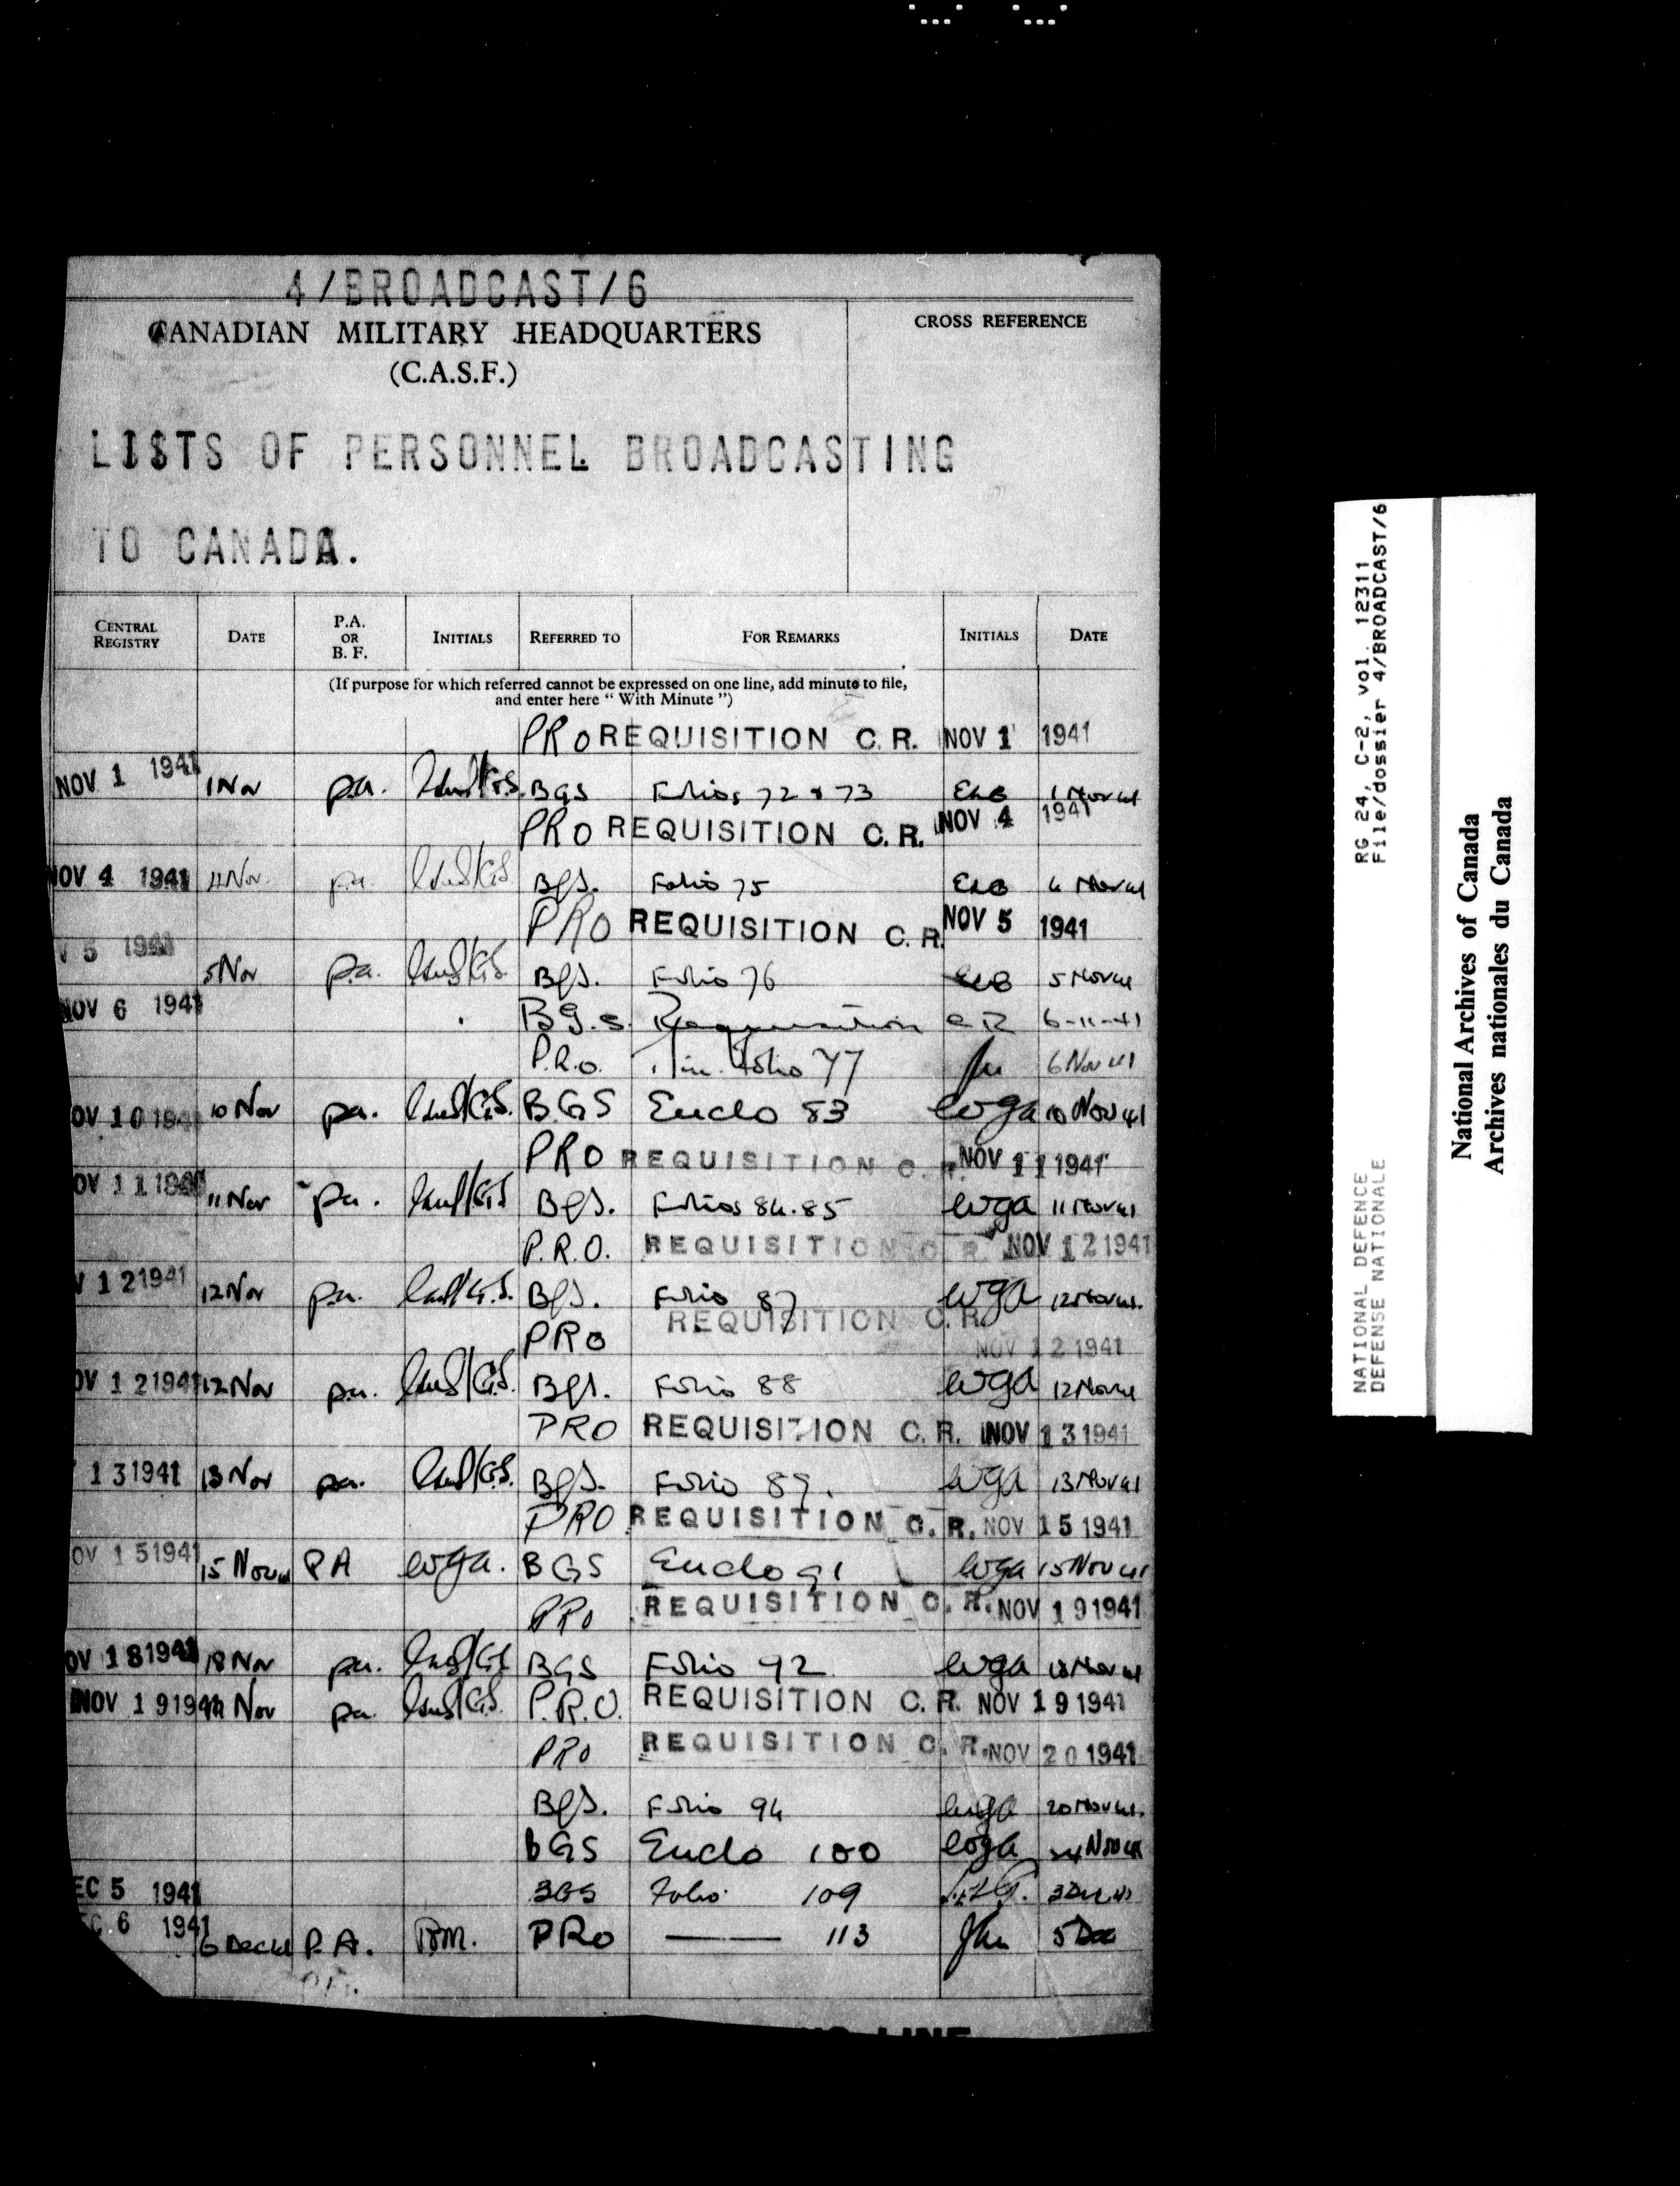 4/BROADCAST/6
CANADIAN MILITARY HEADQUARTERS
(C.A.S.F.)
CROSS REFERENCE
LISTS OF PERSONNEL BROADCASTING
TO CANADA.
CENTRAL REGISTRY DATE P.A. OR B. F. INITIALS REFERRED TO FOR REMARKS INITIALS DATE
(If purpose for which referred cannot be expressed on one line, add minute to file,
and enter here “ With Minute ”)
PRO REQUISITION C. R. NOV 1 1941
NOV 1 1941 1 Nov p.a. BGS Folios 72 & 73 ELB 1 Nov 41
PRO REQUISITION C. R. NOV 4 1941
NOV 4 1941 4 Nov. pa BGS. Folio 75 ELB 4 Nov 41
PRO REQUISITION C. R. NOV 5 1941
V 5 1941 5 Nov pa. BGS. Folio 76 ELB 5 Nov 41
NOV 6 1941 B.G.S. Requisition CR 6-11-41
P.R.O. folio 77 6 Nov 41
OV 10 1941 10 Nov pa. BGS Enclo 83 wga 10 Nov 41
PRO REQUISITION C. R. NOV 11 1941
OV 11 1941 11 Nov pa. BGS. Folios 84.85 wga 11 Nov 41
P.R.O. REQUISITION C. R. NOV 12 1941
V 12 1941 12 Nov pa. BGS. Folio 87 wga 12 Nov 41.
PRO REQUISITION C. R. NOV 12 1941
OV 12 1941 12 Nov pa. BGS. Folio 88 wga 12 Nov 41
PRO REQUISITION C. R. NOV 13 1941
13 1941 13 Nov pa. BGS. Folio 89. wga 13 Nov 41
PRO REQUISITION C. R. NOV 15 1941
OV 15 1941 15 Nov 41 PA wga. BGS Enclo 91 wga 15 Nov 41
PRO REQUISITION C. R. NOV 19 1941
OV 18 1941 18 Nov pa. BGS Folio 92 wga 18 Nov 41
NOV 19 1941 Nov pa P.R.O. REQUISITION C. R. NOV 19 1941
PRO REQUISITION C. R. NOV 20 1941
BGS. Folio 94 wga 20 Nov 41.
BGS Enclo 100 wga 24 Nov 41
EC 5 1941 BGS Folio 109 3 Dec 41
EC. 6 1941 6 Dec 41 P.A. BM. PRO — 113 5 Dec
RG 24, C-2, vol. 12311
File/dossier 4/BROADCAST/6
NATIONAL DEFENCE
DEFENSE NATIONALE
National Archives of Canada
Archives nationales du Canada